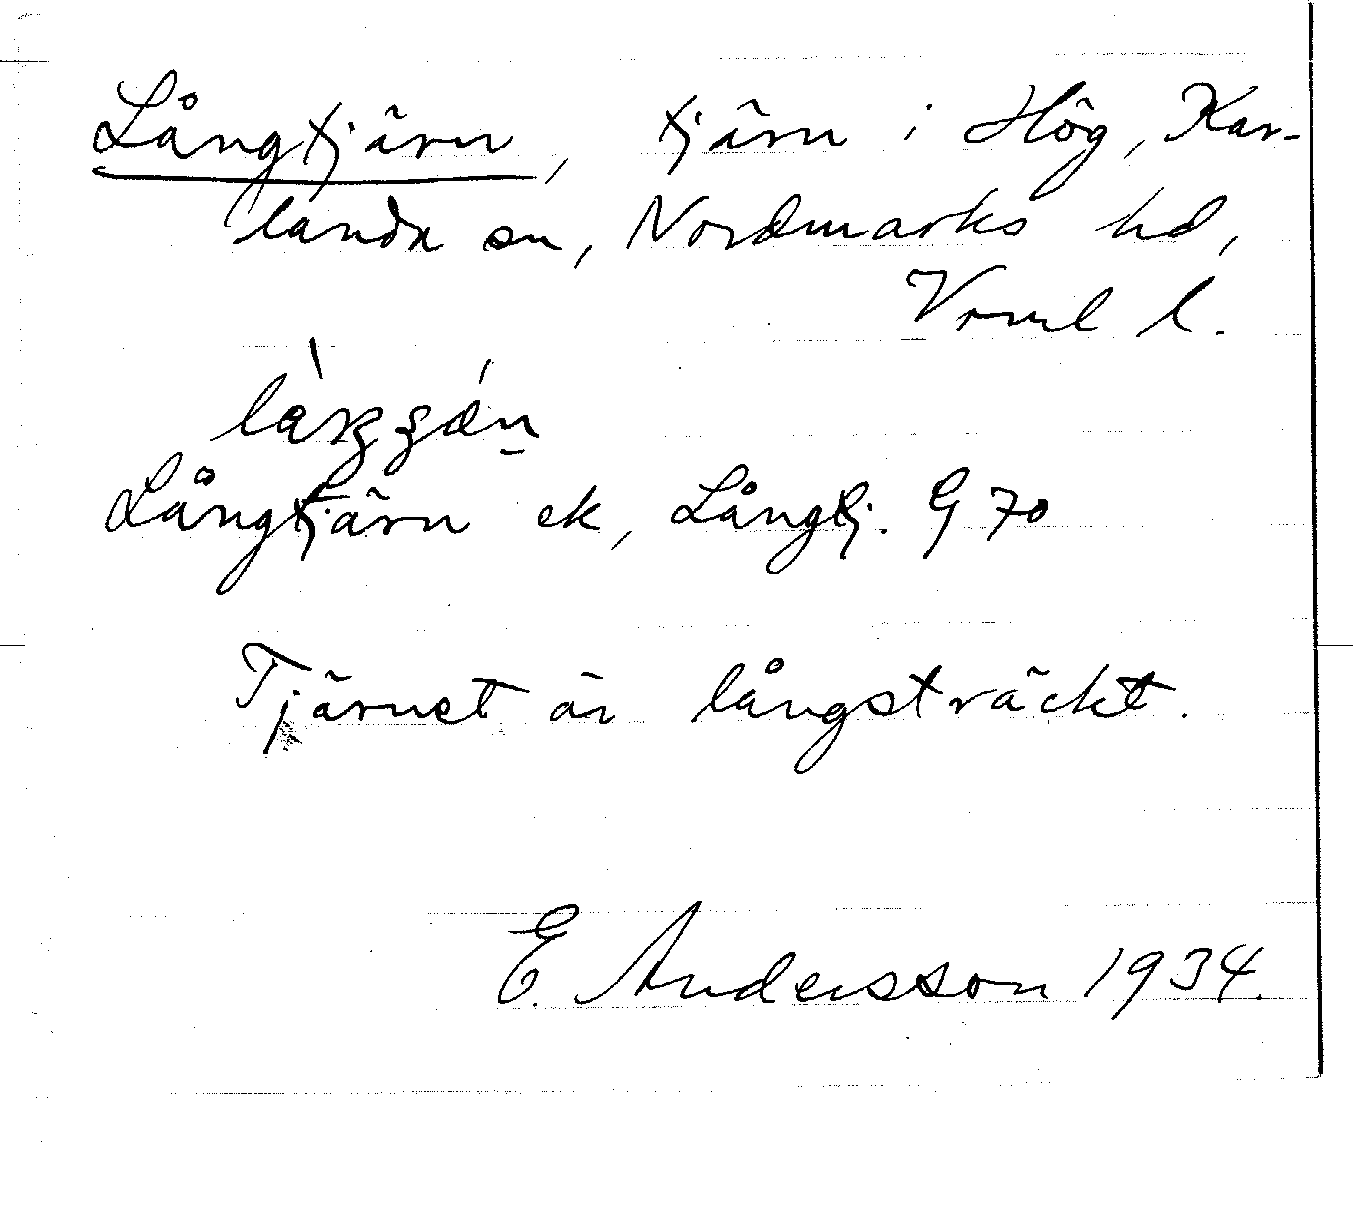 Långtjärn, tjärn i Hög, Kar-
landa sn, Nordmarks hd,
Vrml l.
Långtjärn ek, Långtj. G 70
Tjärnet är långsträckt.
E. Andersson 1934.